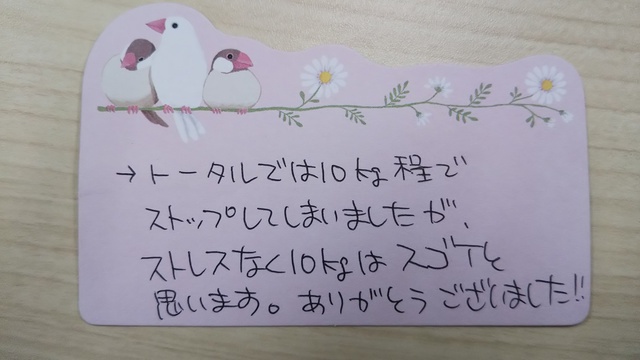 →トータルでは10kg程で
ストップしてしまいましたが、
ストレスなく10kgはスゴイと
思います。ありがとうございました!!